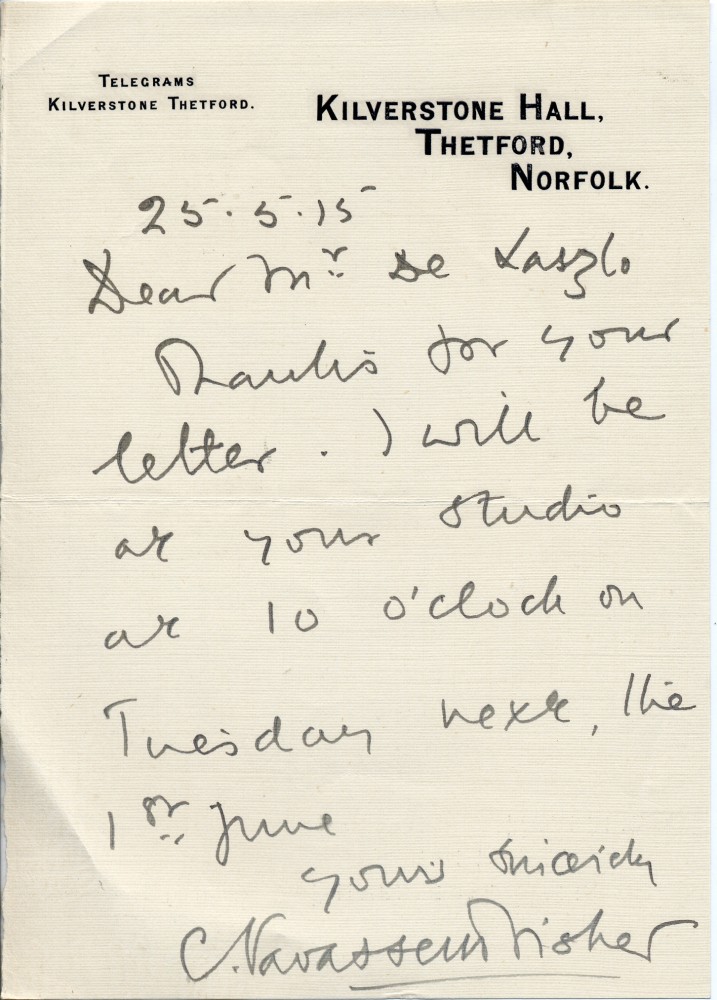 TELEGRAMS
KILVERSTONE THETFORD.
KILVERSTONE HALL,
THETFORD,
NORFOLK.
25.5.15
Dear Mr De Laszlo
Thanks for your
letter. I will be
at your studio
at 10 o'clock on
Tuesday next, the
1st June
yours sincerely
C. Vavasseur Fisher